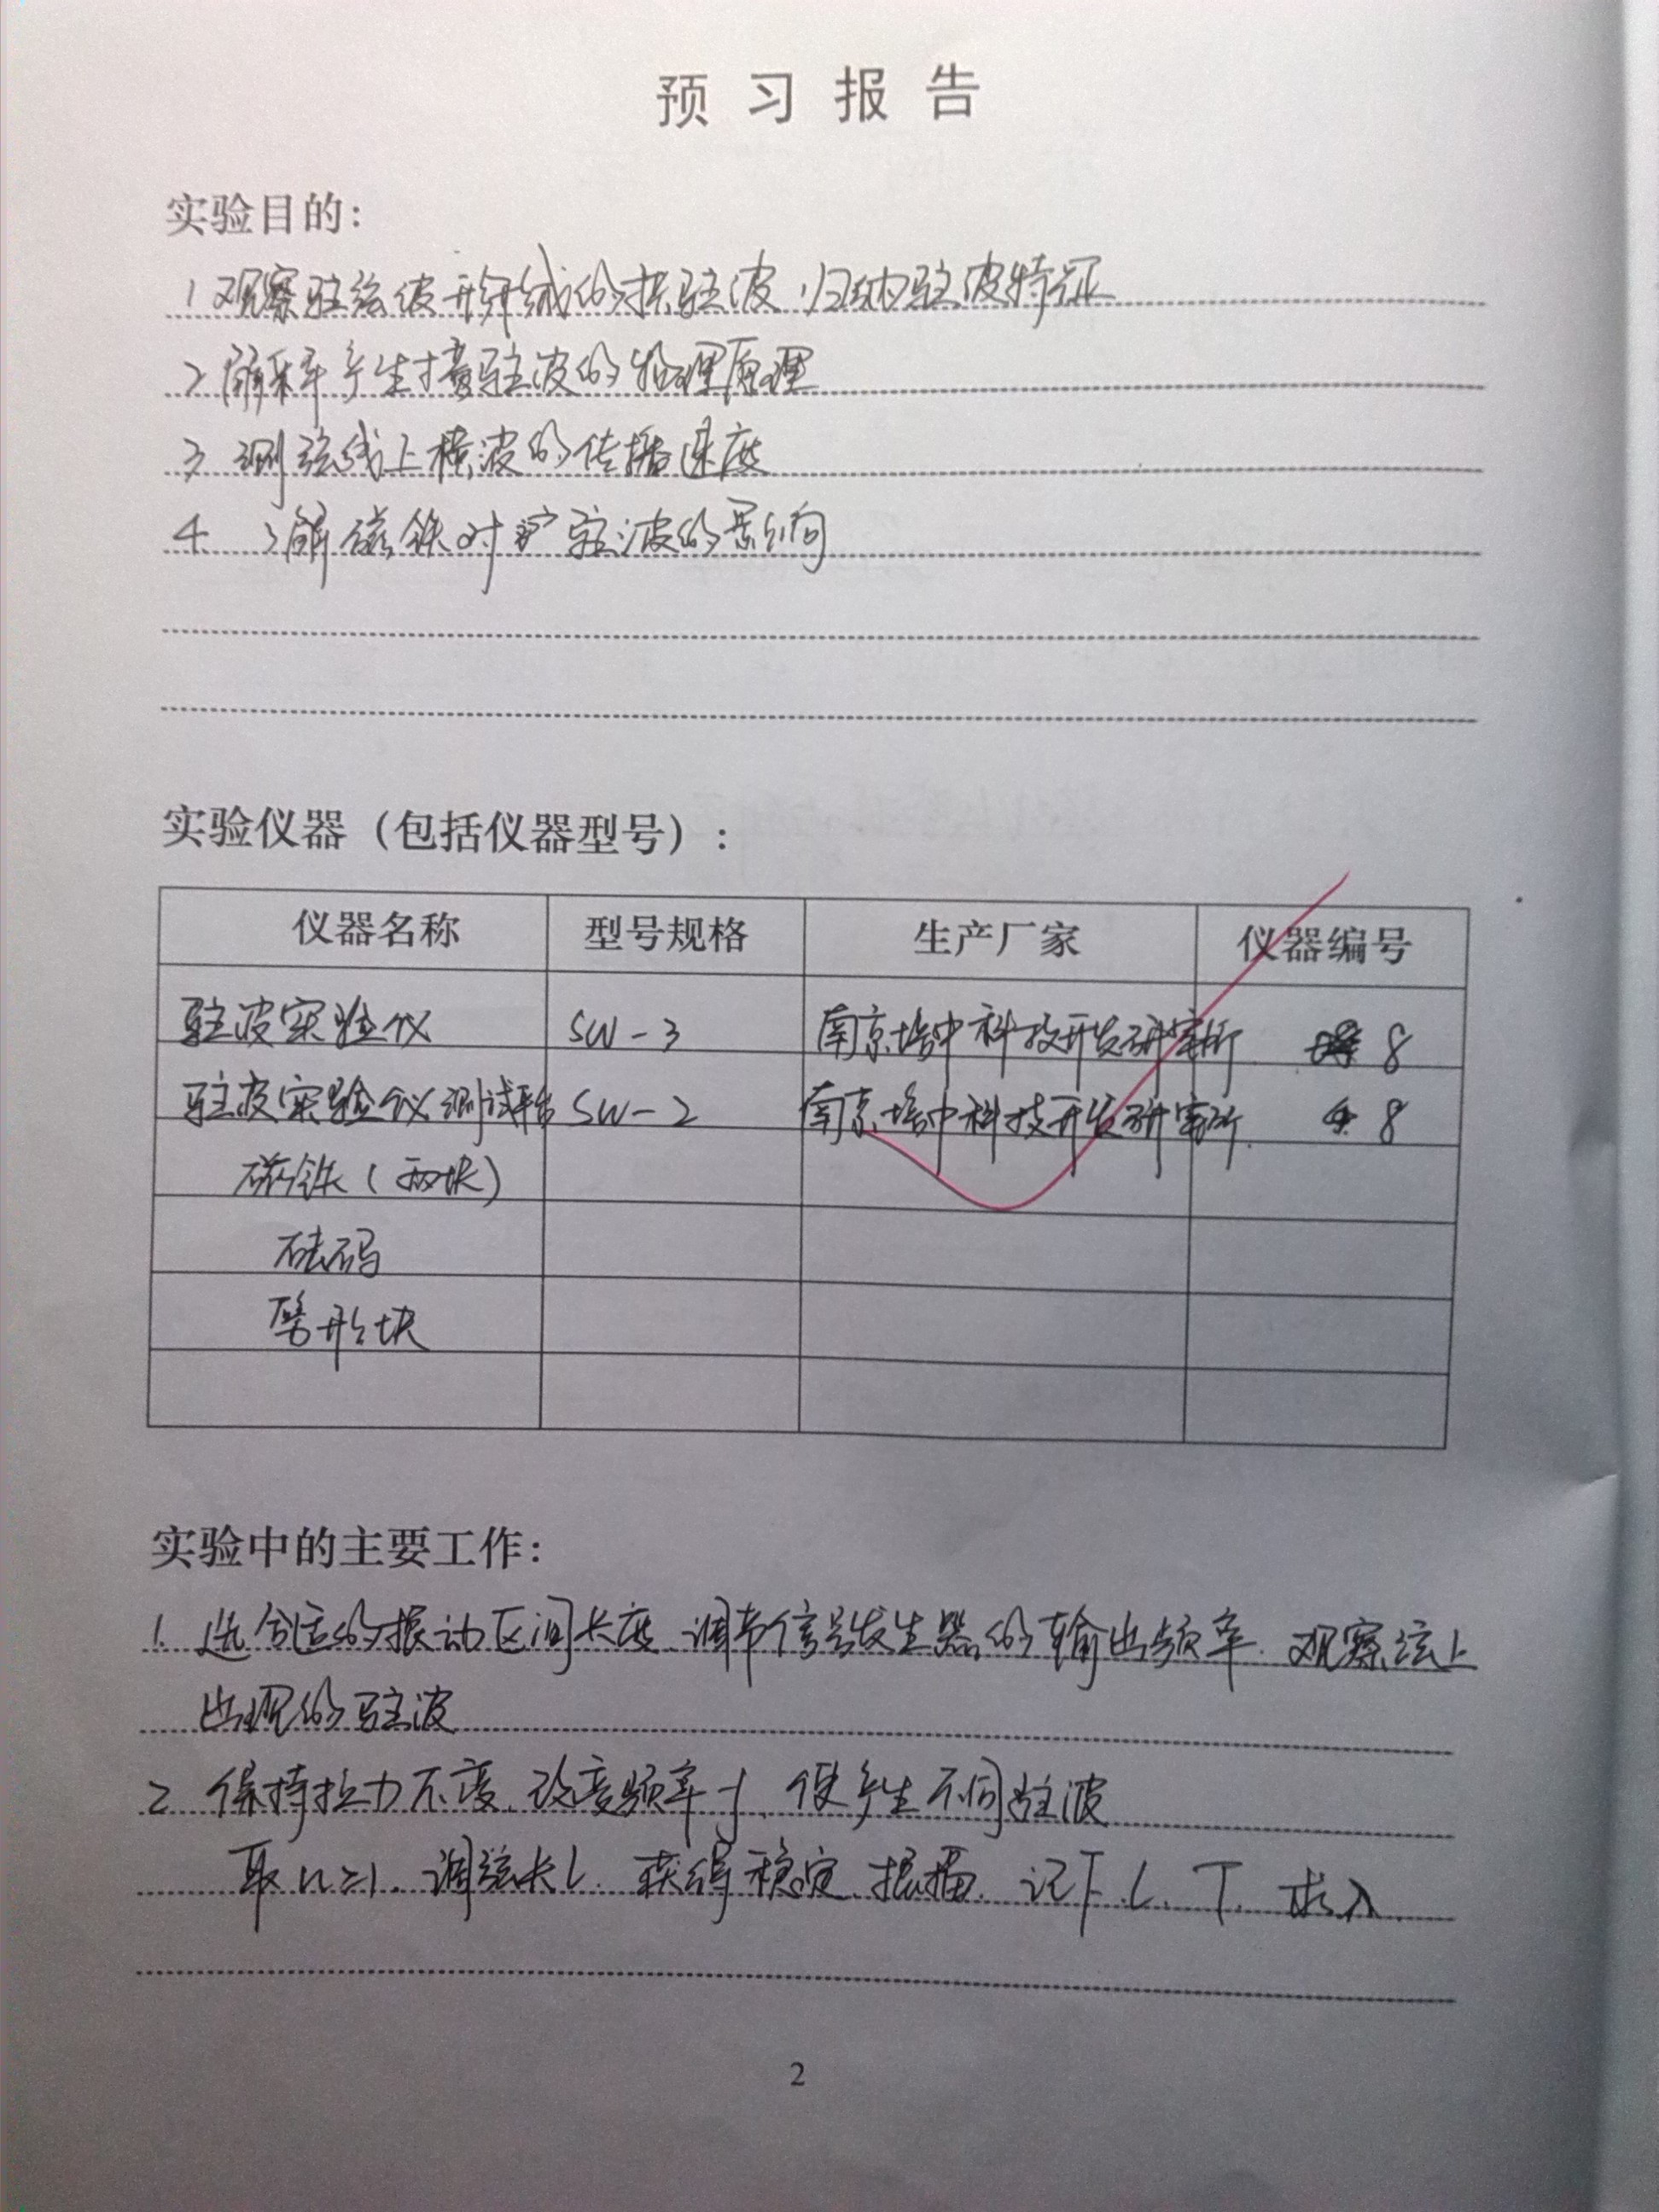 预习报告
实验目的：
1 观察驻弦波形成的振驻波，归纳驻波特征
2 解释产生横驻波的物理原理
3 测弦线上横波的传播速度
4 了解磁铁对驻波的影响
实验仪器（包括仪器型号）：
仪器名称 型号规格 生产厂家 仪器编号
驻波实验仪 SW-3 南京培中科技开发研究所 8
驻波实验仪测试平台 SW-2 南京培中科技开发研究所 8
磁铁（两块）
砝码
劈形块
实验中的主要工作：
1. 选合适的振动区间长度，调节信号发生器的输出频率，观察弦上
出现的驻波
2 保持拉力不变，改变频率f，使产生不同驻波
取n=1，调弦长L，获得稳定振幅，记下L、T，求λ
2